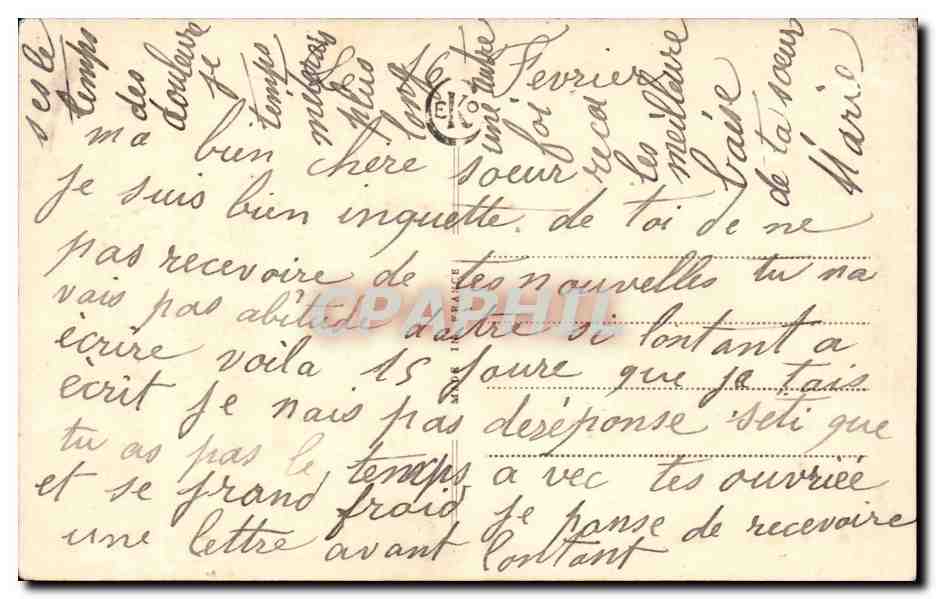 Le 16 Fevrier
ma bien chère soeur
je suis bien inquette de toi de ne
pas recevoire de tes nouvelles tu na
vais pas abitude daitre si lontant a
écrire voila 15 joure que je tais
écrit je nais pas deréponse seti que
tu as pas le temps a vec tes ouvriée
et se frand froid je panse de recevoire
une lettre avant lontant
ses le
temps
des
douleure
se
temps
plus
long
une autre
foi
recoi
les
meilleure
baise
de ta soeur
Marie
EKO
MADE IN FRANCE
CPAPHIL